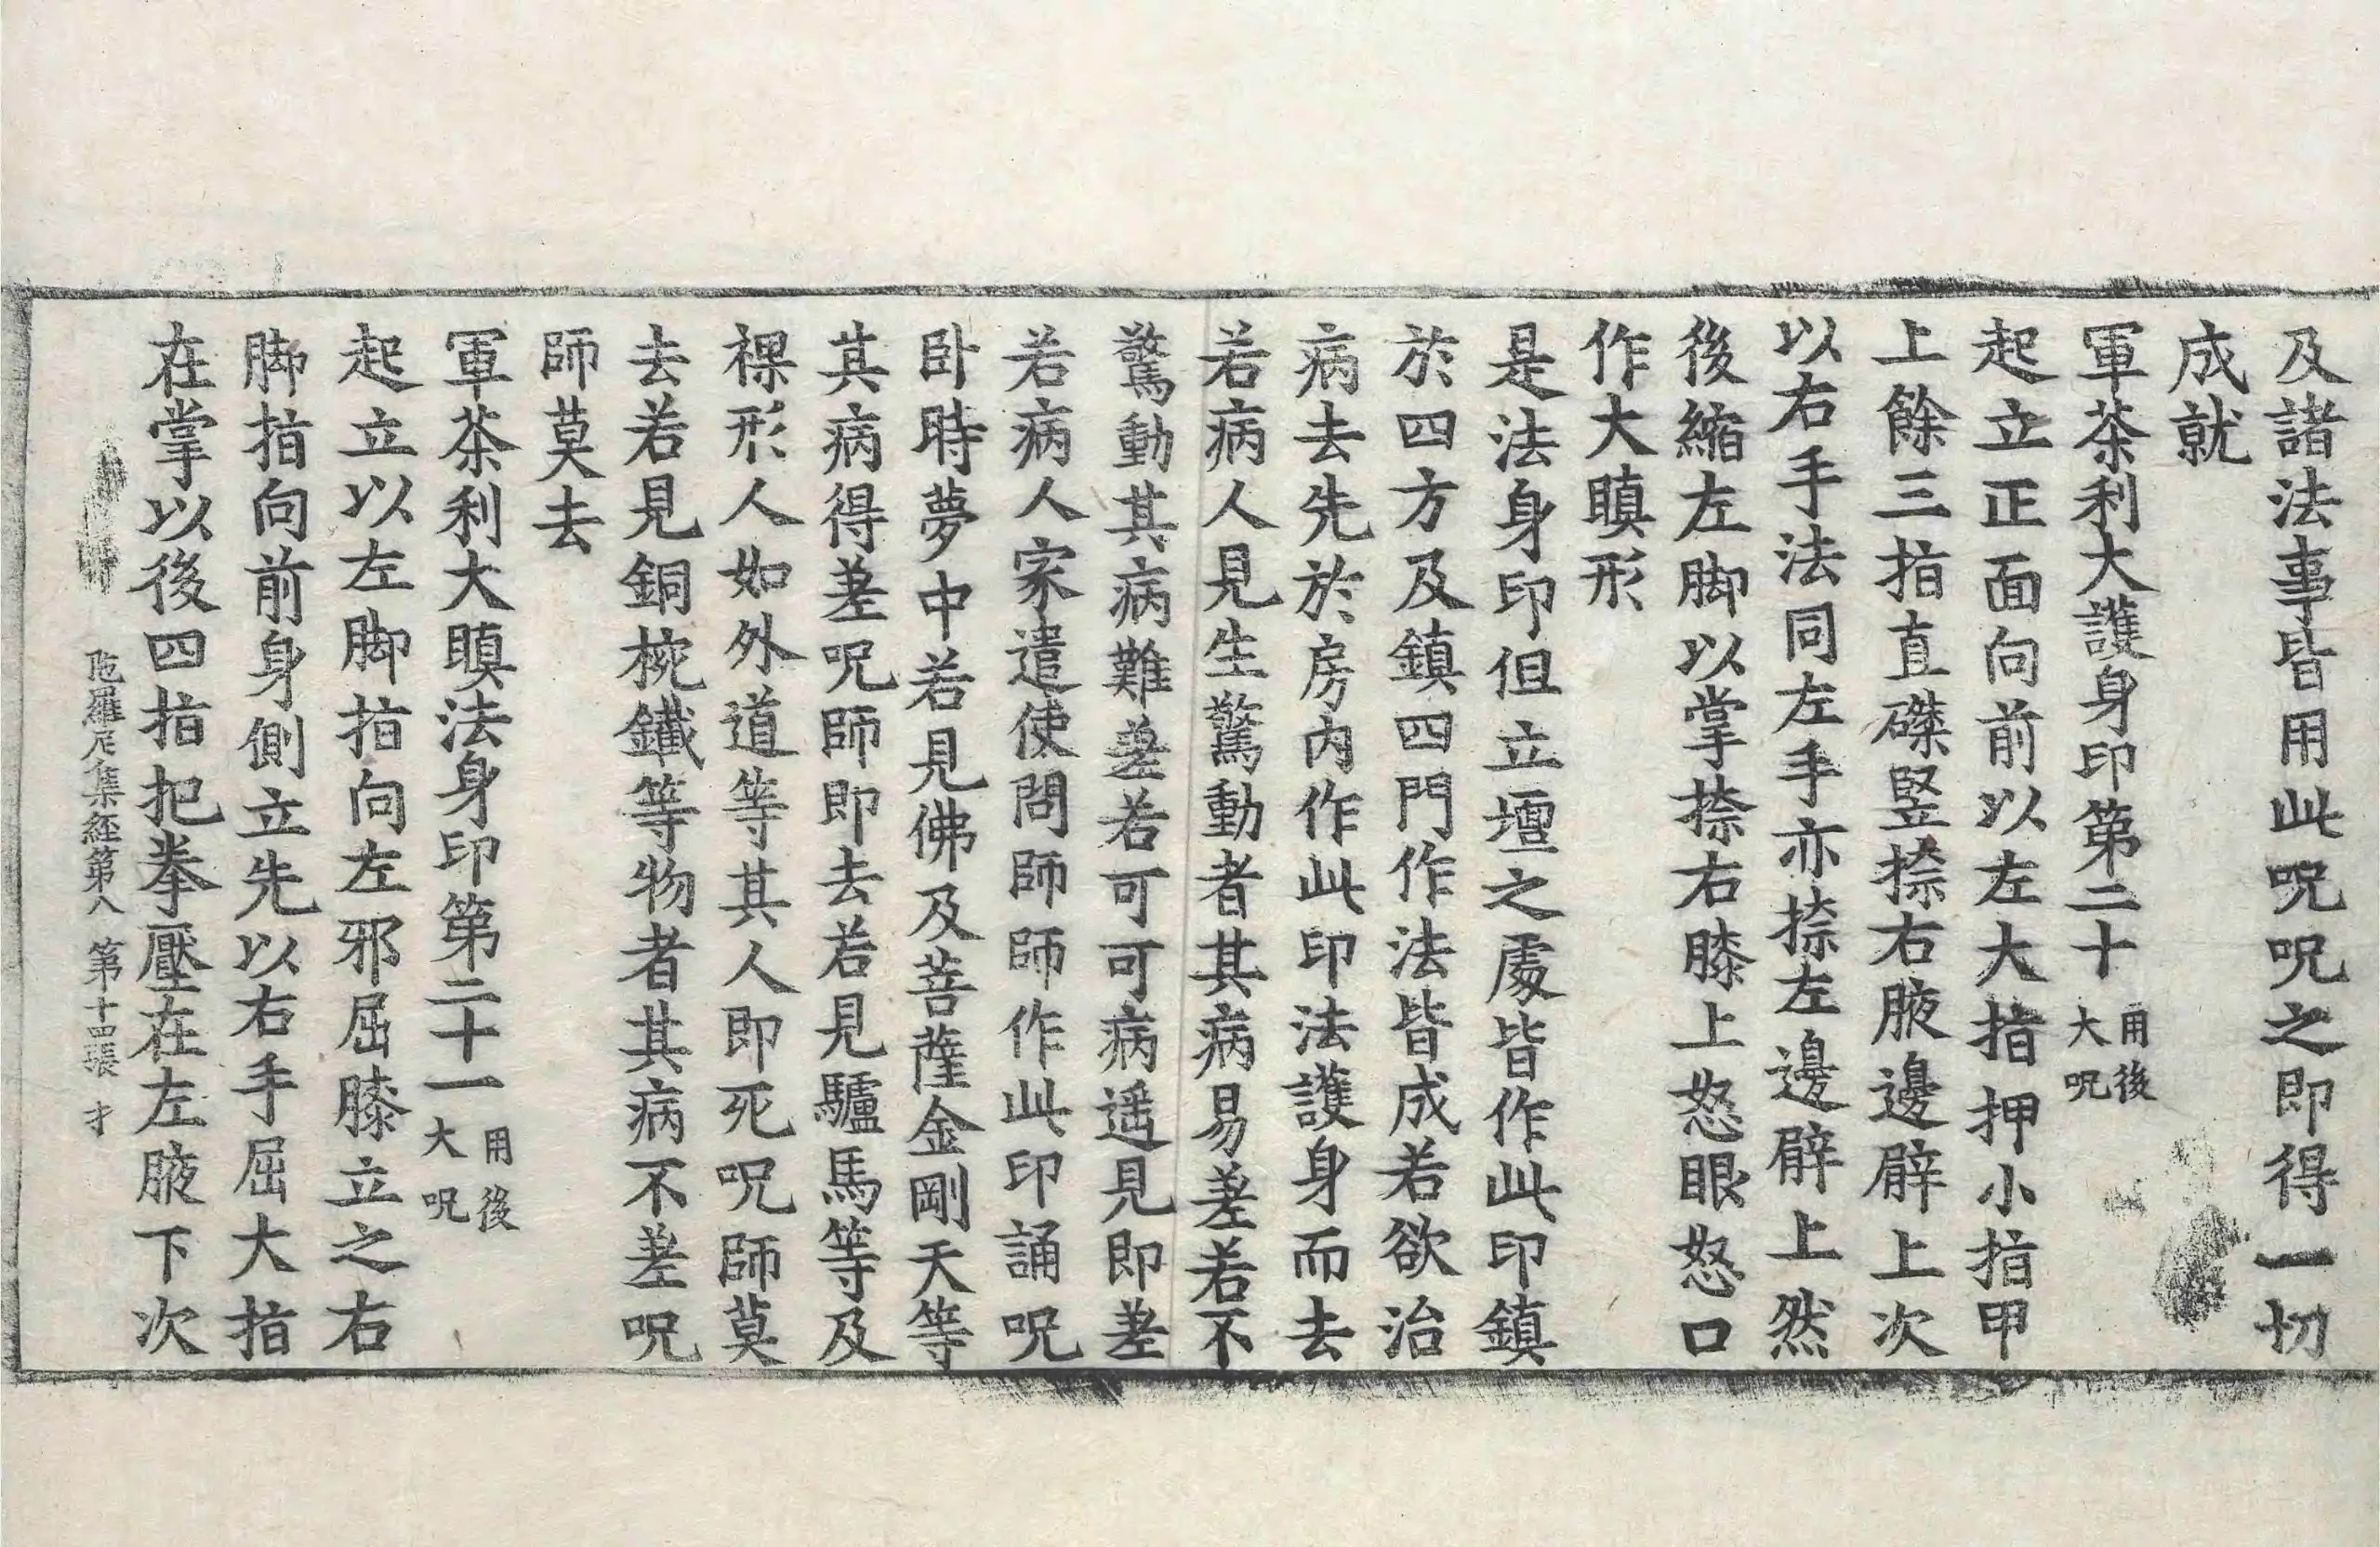 及諸法事皆用此呪呪之即得一切
成就
軍荼利大護身印第二十用後大呪
起立正面向前以左大指押小指甲
上餘三指直磔竪捺右腋邊辟上次
以右手法同左手亦捺左邊辟上然
後縮左脚以掌捺右膝上怒眼怒口
作大瞋形
是法身印但立壇之處皆作此印鎮
於四方及鎮四門作法皆成若欲治
病去先於房内作此印法護身而去
若病人見生驚動者其病易差若不
驚動其病難差若可可病遥見即差
若病人家遣使問師師作此印誦呪
卧時夢中若見佛及菩薩金剛天等
其病得差呪師即去若見驢馬等及
裸形人如外道等其人即死呪師莫
去若見銅椀鐵等物者其病不差呪
師莫去
軍荼利大瞋法身印第二十一用後大呪
起立以左脚指向左邪屈膝立之右
脚指向前身側立先以右手屈大指
在掌以後四指把拳壓在左腋下次
陁羅尼集経第八 第十四張 才